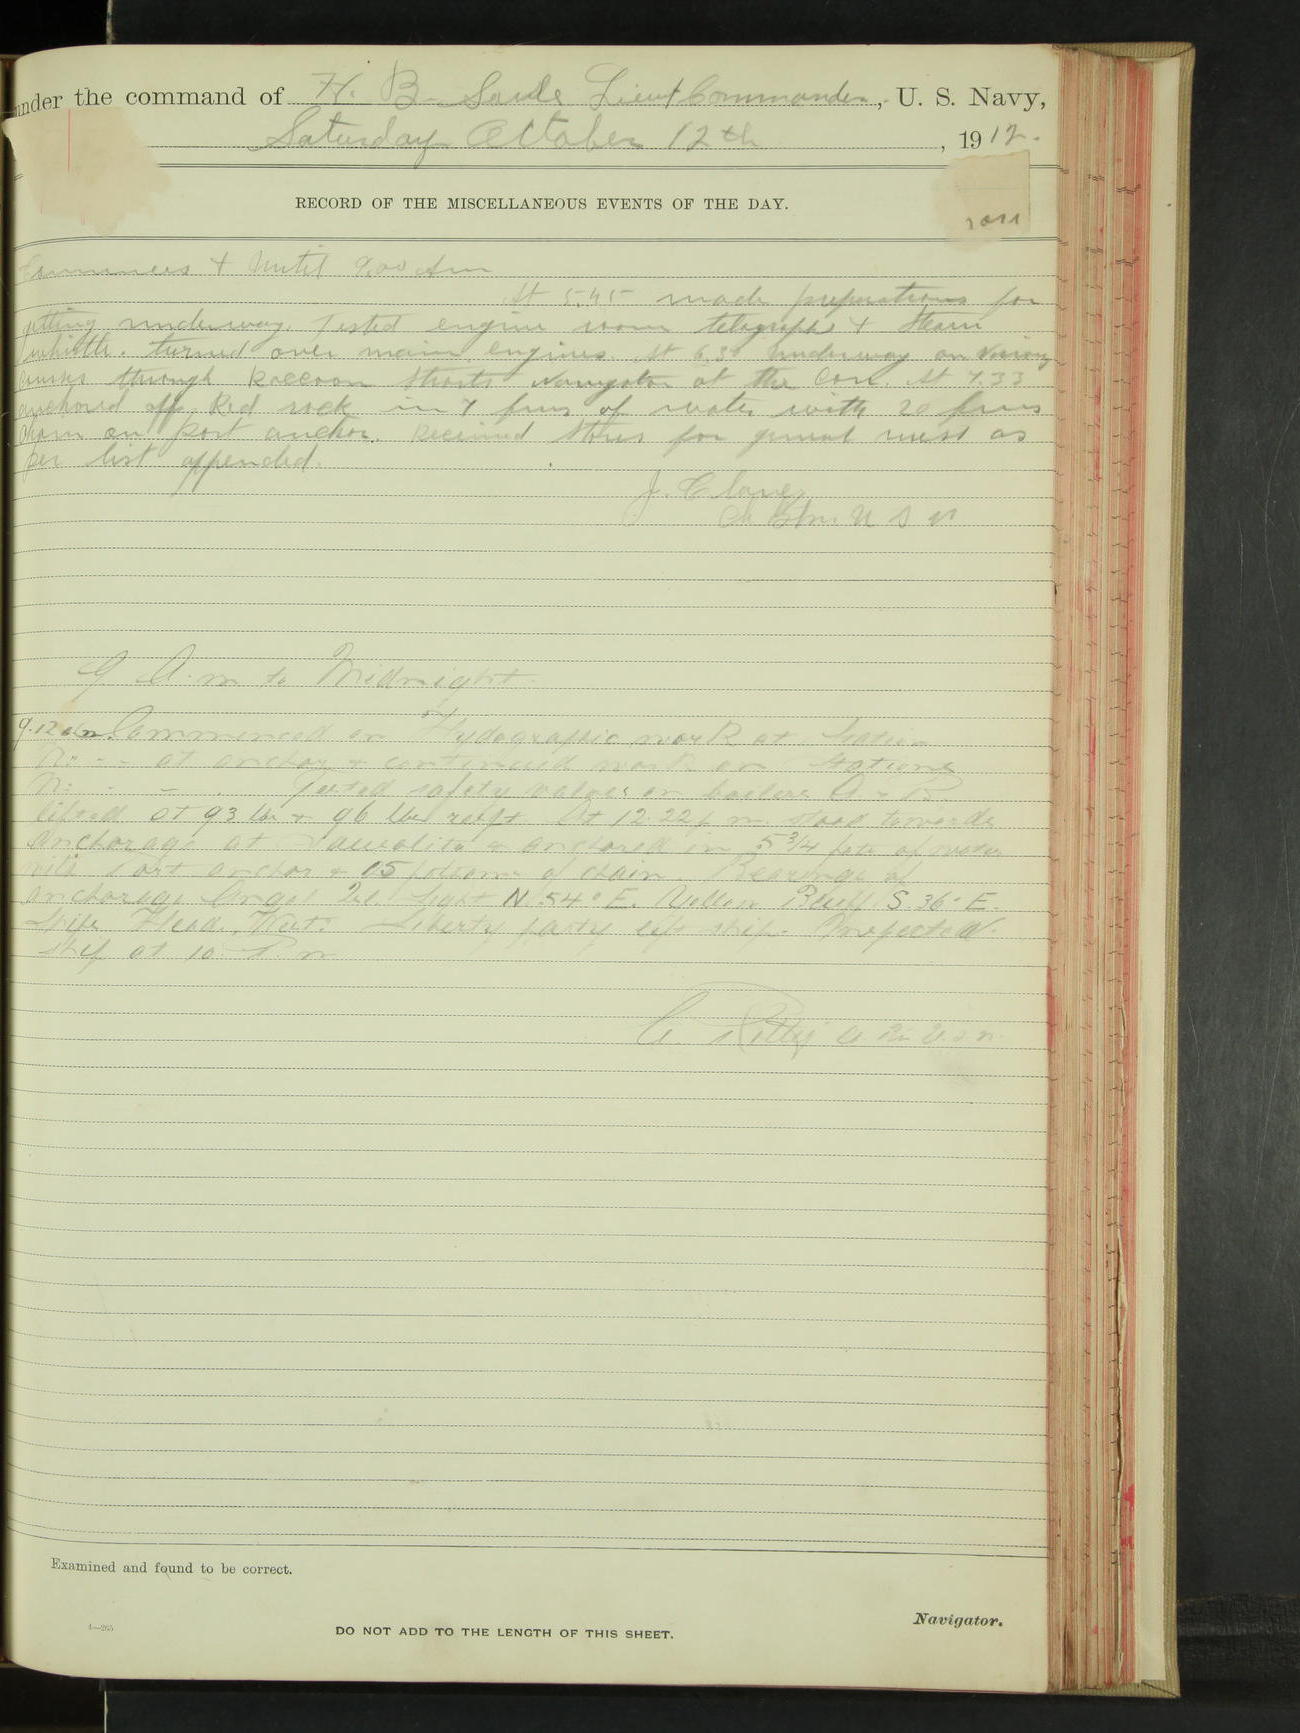 under the command of H. B. Soule Lieut Commander, U. S. Navy,
Saturday October 12th, 1912.
RECORD OF THE MISCELLANEOUS EVENTS OF THE DAY.
Commences & Until 9.00 Am
At 5.45 made preparations for
getting underway. Tested engine room telegraphs & steam
whistle. turned over main engines. At 6.30 underway on various
courses through Raccoon Straits Navigator at the Con. At 7.33
anchored off Red rock in 7 fms of water with 20 fms
chain on port anchor. Received stores for general mess as
per list appended.
J. Clancy
Ch Btn. U S N
9 A.m to Midnight.
9.12 am Commenced on Hydographic work at Station
No - - at anchor & continued work on Stations
No - - . Tested safety valves on boilers A & B
lifted at 93 lbs & 96 lbs At 12.22 p m. stood towards
anchorage at Sausalito & anchored in 5 3/4 fms of water
with Port anchor & 15 fathoms of chain. Bearings at
anchorage Angel Isl. Light N 54° E. Yellow Bluff S 36° E.
Ships Head West. Liberty party left ship. Inspected
ship at 10 P. m
U.S.N.
Examined and found to be correct.
4—265
DO NOT ADD TO THE LENGTH OF THIS SHEET.
Navigator.